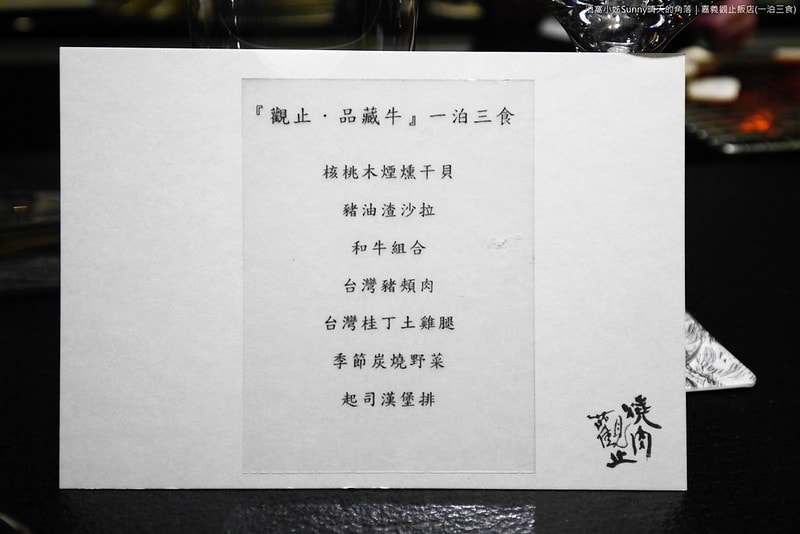 酒窩小姊Sunny晴天的角落｜嘉義觀止飯店(一泊三食)
『觀止・品藏牛』一泊三食
核桃木煙燻干貝
豬油渣沙拉
和牛組合
台灣豬頰肉
台灣桂丁土雞腿
季節炭燒野菜
起司漢堡排
燒肉
觀止